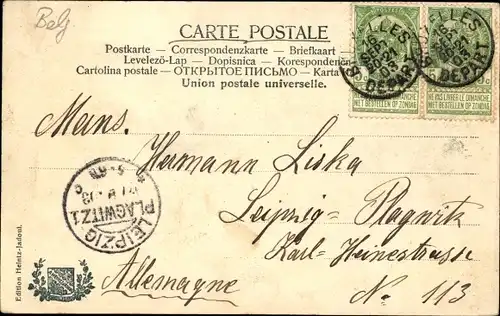 Belg
CARTE POSTALE
Postkarte — Correspondenzkarte — Briefkaart
Levelező-Lap — Dopisnica — Korespondenční
Cartolina postale — ОТКРЫТОЕ ПИСЬМО — Karta
Union postale universelle.
NE PAS LIVRER LE DIMANCHE
NIET BESTELLEN OP ZONDAG
NE PAS LIVRER LE DIMANCHE
NIET BESTELLEN OP ZONDAG
DEPART
DEPART
Mons.
Hermann Liska
Leipzig-Plagwitz
Karl-Heinestrasse
No. 113
Allemagne
LEIPZIG
PLAGWITZ 1
Edition Heintz-Jadoul.